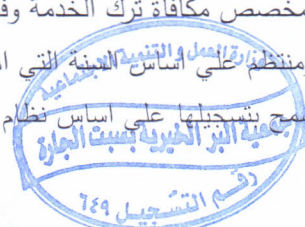 مخصص مكافأة ترك الخدمة وفق
منتظم على أساس السنة التي
سمح بتسجيلها على أساس نظام
وزارة العمل و التنمية الاجتماعية
جمعية البر الخيرية بست الجارة
رقم التسجيل ٦٤٩